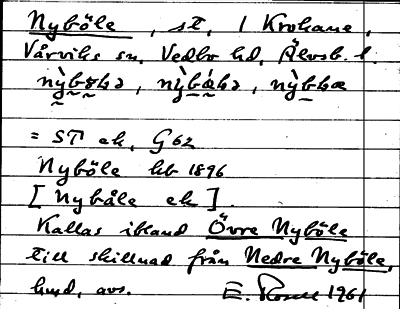 Nyböle, st, 1 Krokane,
Vårviks sn, Vedbo hd, Älvsb. l.
= ST ek, G62
Nyböle kb 1896
[Nybåle ek].
Kallas ibland Övre Nyböle
till skillnad från Nedre Nyböle,
hmd, avs. E. Rosell 1961